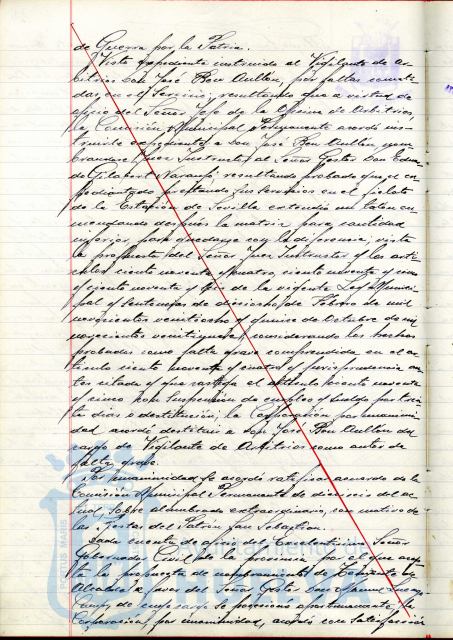 de Guerra por la Patria.
Visto expediente instruido al Vigilante de Ar-
bitrios Don José Ron Aullón, por faltas cometi-
das en el Servicio; resultando que a virtud de
oficio del Señor Jefe de la Oficina de Arbitrios,
la Comisión Municipal Permanente acordó ins-
truirle expediente a Don José Ron Aullón, nom-
brandose Juez Instructor al Señor Gestor Don Eduar-
do Gilaport Naranjo; resultando probado que el ex-
pedientado prestando sus servicios en el fielato
de la Estación de Sevilla extendió un talón en-
mendando después la matriz para cantidad
inferior, para quedarse con la diferencia; vista
la propuesta del Señor Juez Instructor y los artí-
culos ciento noventa y cuatro, ciento noventa y cinco
y ciento noventa y seis de la vigente Ley Munici-
pal y Sentencias de dieciocho de Febrero de mil
novecientos veintiocho y quince de Octubre de mil
novecientos veintinueve; considerando los hechos
probados como falta grave comprendida en el ar-
tículo ciento noventa y cuatro y jurisprudencia an-
tes citada y que castiga el artículo ciento noventa
y cinco con suspensión de empleo y sueldo por trein-
ta días o destitución; la Corporación por unanimi-
dad acordó destituir a Don José Ron Aullón del
cargo de Vigilante de Arbitrios como autor de
falta grave.
Por unanimidad se acordó ratificar acuerdo de la
Comisión Municipal Permanente de dieciseis del ac-
tual, sobre alumbrado extraordinario, con motivo de
las fiestas del Patrón San Sebastián.
Dada cuenta de oficio del Excelentísimo Señor
Gobernador Civil de la provincia por el que acep-
ta la propuesta de nombramiento de Teniente de
Alcalde a favor del Señor Gestor Don Manuel
de cuyo cargo se posesionó oportunamente, la
Corporación por unanimidad, acordó con satisfacción
PORTUS MARIS